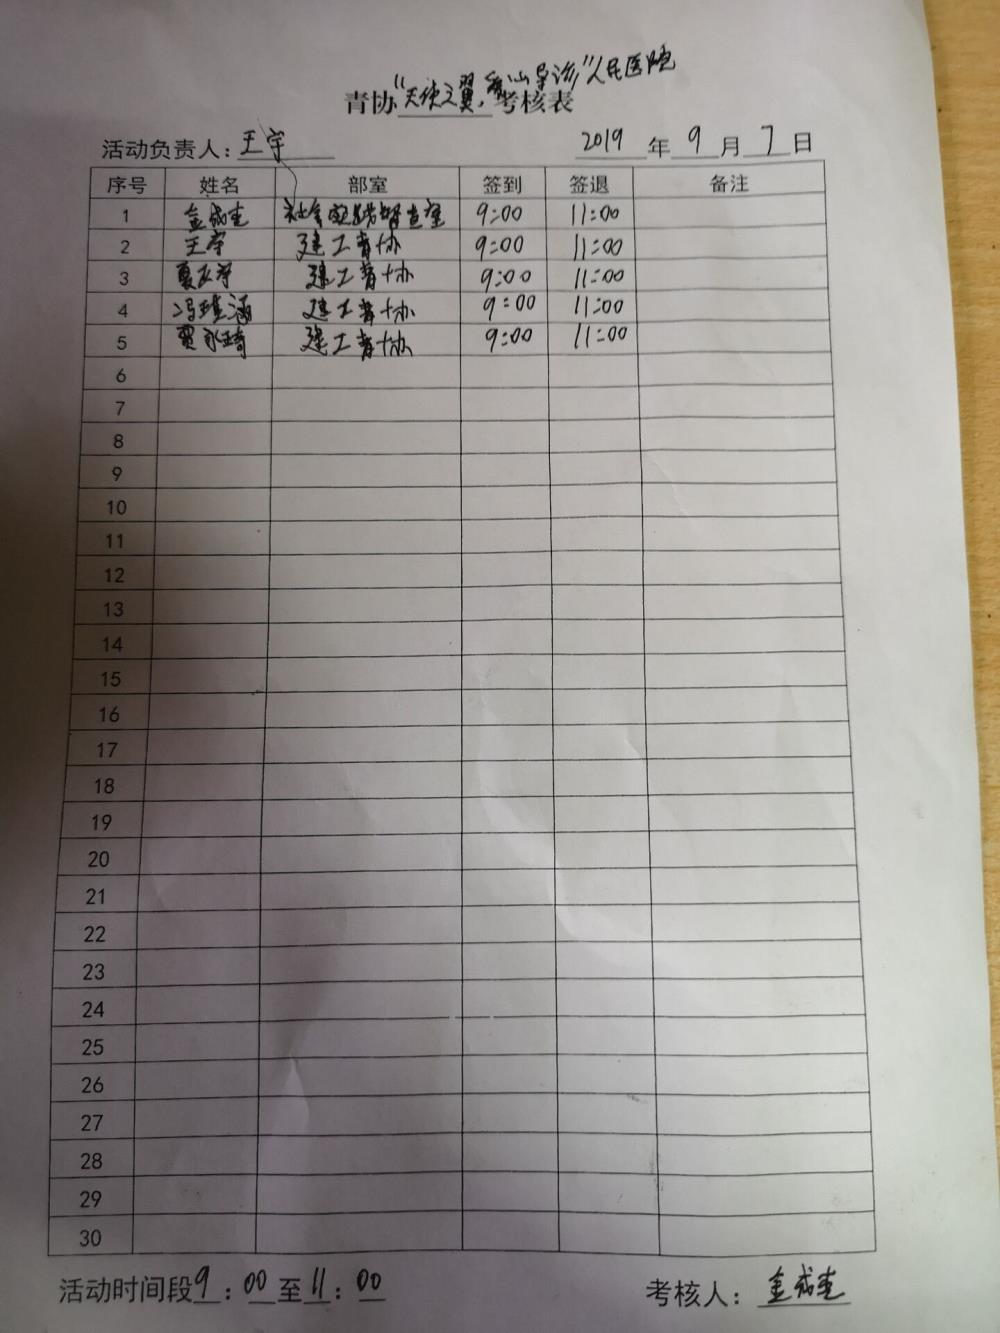 青协"天使之翼,爱心导诊"人民医院考核表
活动负责人:王宇 2019年9月7日
序号 姓名 部室 签到 签退 备注
1 金成奎 社会实践 9:00 11:00
2 王宇 建工青协 9:00 11:00
3 建工青协 9:00 11:00
4 冯瑾涵 建工青协 9:00 11:00
5 贾永琦 建工青协 9:00 11:00
6
7
8
9
10
11
12
13
14
15
16
17
18
19
20
21
22
23
24
25
26
27
28
29
30
活动时间段9:00至11:00 考核人:金成奎